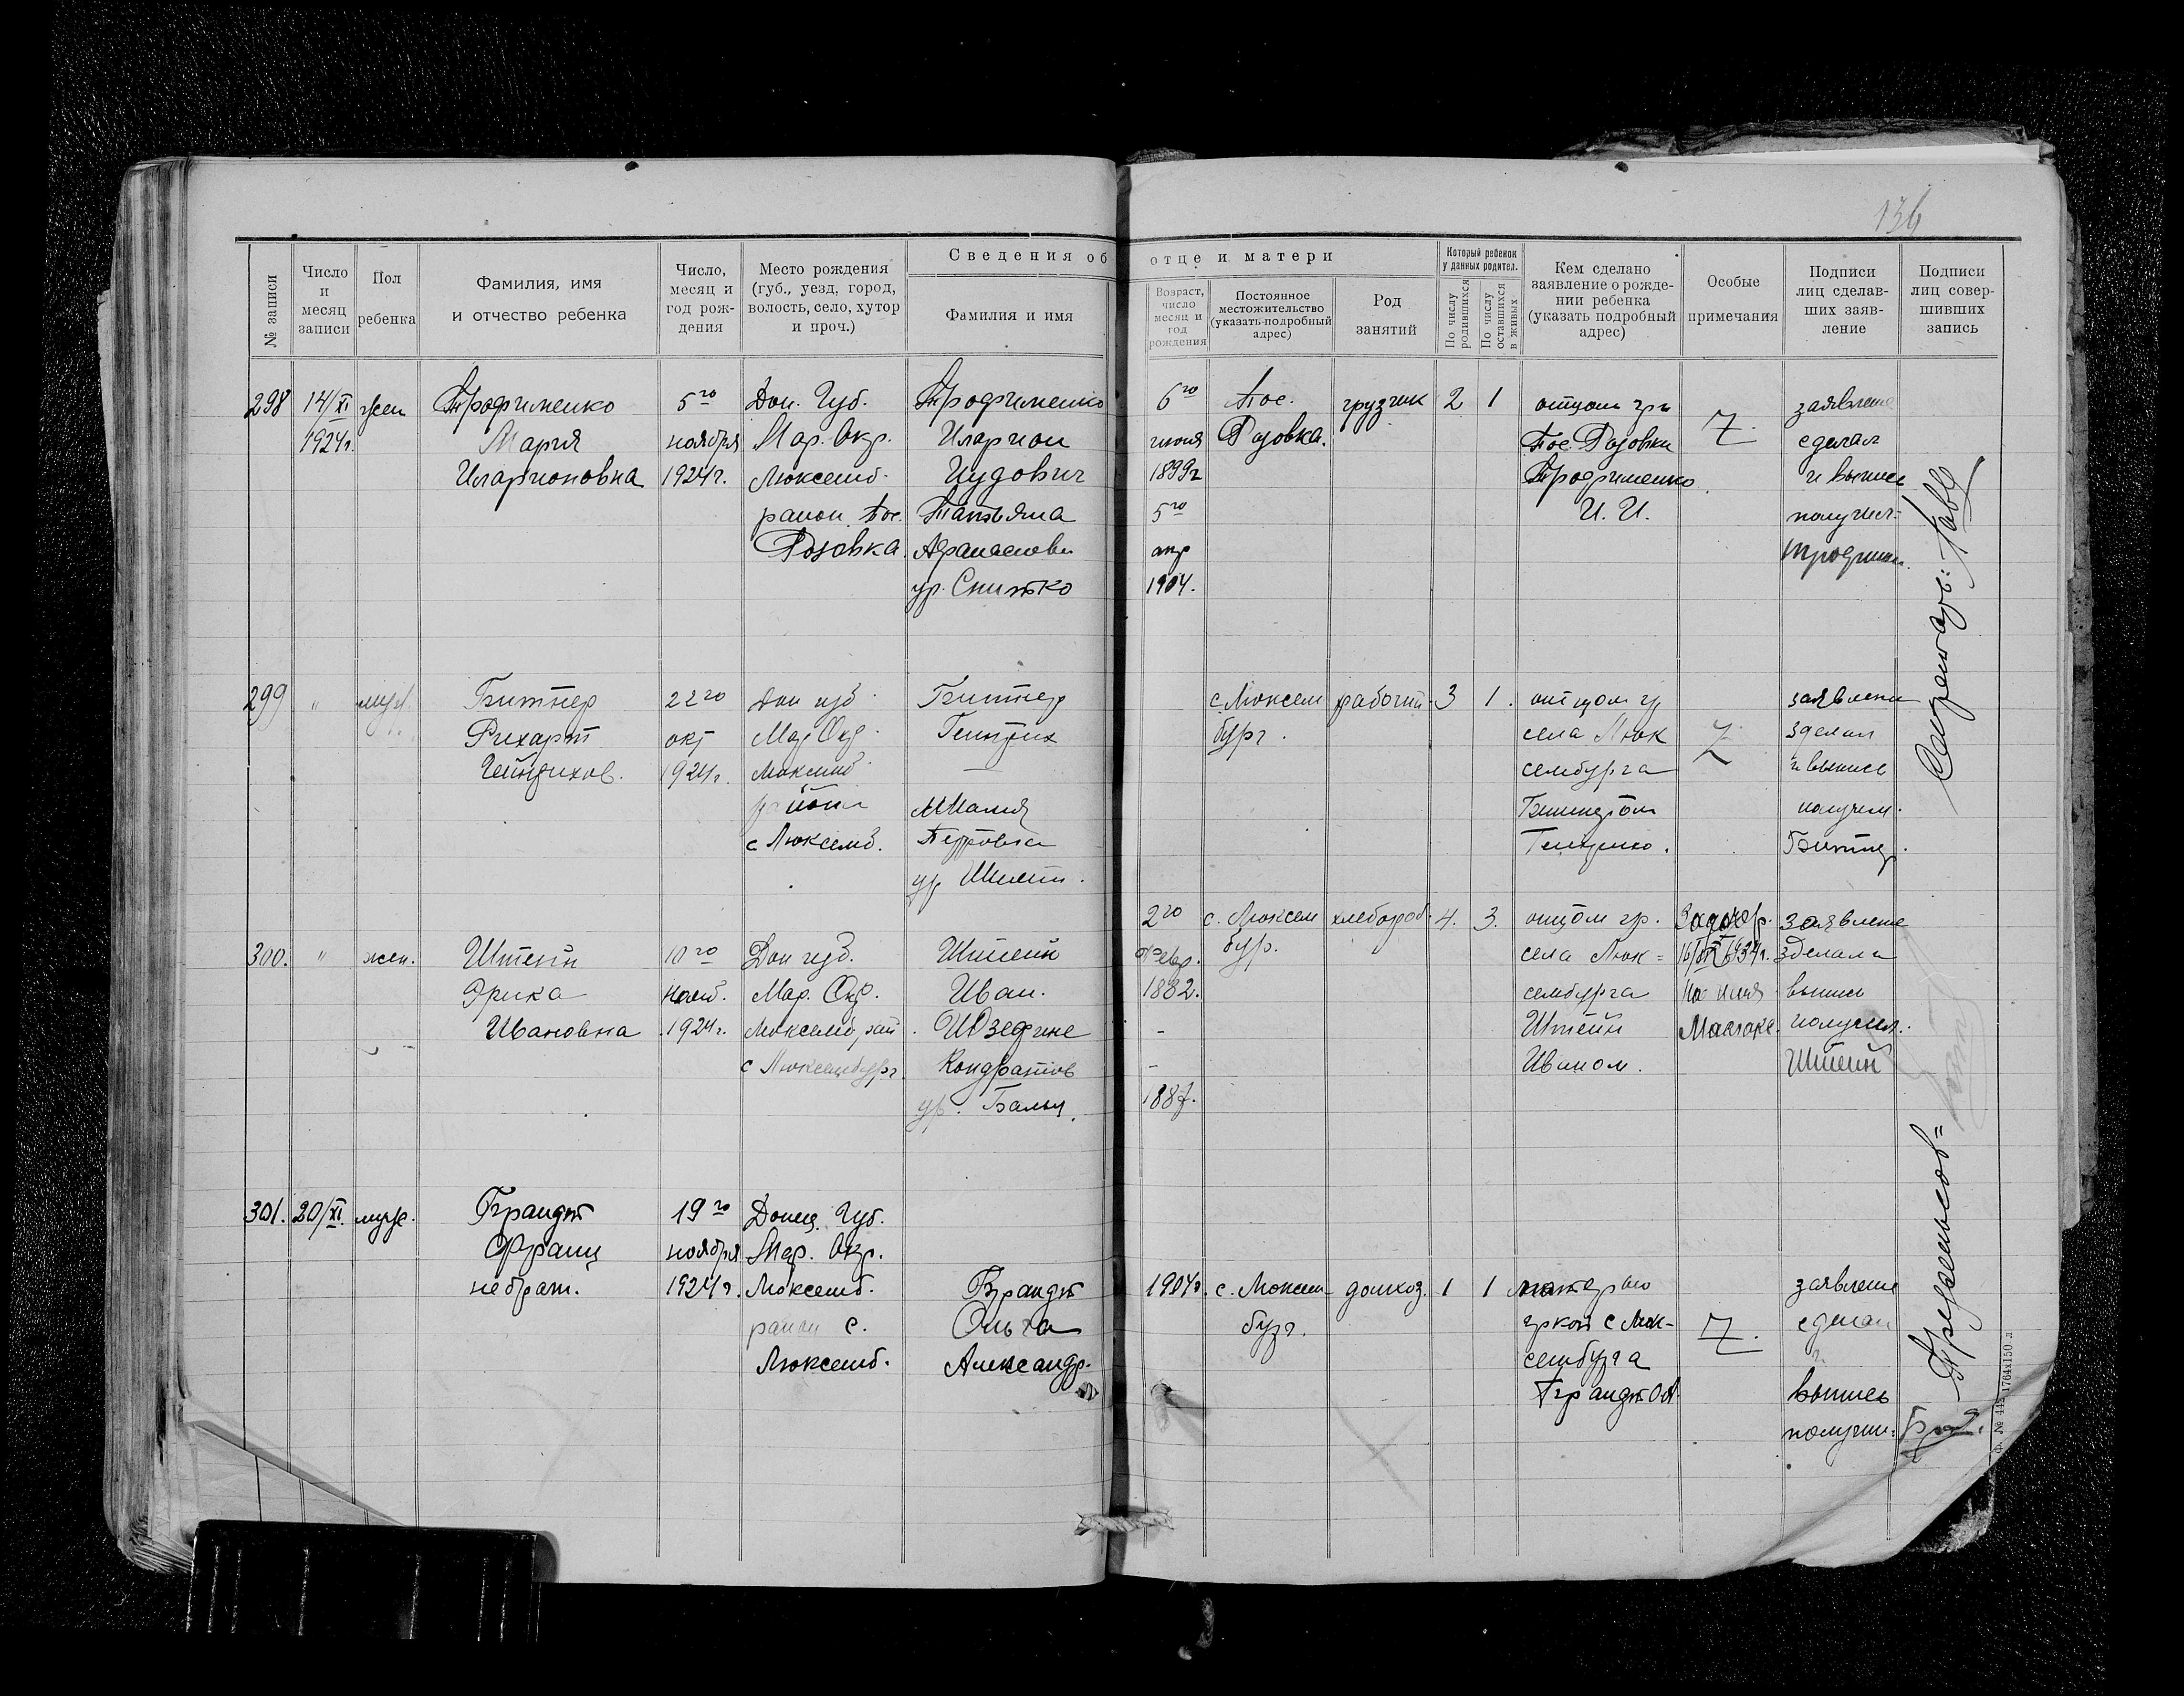 136
Сведения об отце и матери
№ записи
Число и месяц записи
Пол ребенка
Фамилия, имя и отчество ребенка
Число, месяц и год рождения
Место рождения (губ., уезд, город, волость, село, хутор и проч.)
Фамилия и имя
Возраст, число месяц и год рождения
Постоянное местожительство (указать подробный адрес)
Род занятий
Который ребенок у данных родител.
По числу родившихся
По числу оставшихся в живых
Кем сделано заявление о рождении ребенка (указать подробный адрес)
Особые примечания
Подписи лиц сделавших заявление
Подписи лиц совершивших запись
298
14/XI
1924г.
жен
Трофименко
Мария
Иларионовна
5го
ноября
1924г.
Дон. Губ.
Мар. Окр.
Люксемб.
район. Пос.
Розовка.
Трофименко
Иларион
Иудович
Татьяна
ур. Снитко
6го
июня
1899г
5го
апр
1904.
Пос.
Розовка.
грузчик
2
1
отцом гр.
Пос. Розовки
Трофименко
И. И.
заявление
сделал
и выпись
получил:
299
"
муж.
Битнер
Рихарт
Гейндрихов.
22го
окт
1924г.
Дон губ
Мар Окр
Люксемб
района
с Люксемб.
Битнер
Петровна
с. Люксем
бург.
рабочий
3
1.
отцом гр
села Люк
сембурга
заявлени
зделал
и выпись
получил.
Битнер.
300.
"
жен.
Штейн
Эрика
Ивановна
10го
нояб.
1924г.
Дон губ.
Мар. Окр.
Люксемб. рай
с Люксембург.
Штейн
Иван.
Иозефине
Кондратов
2го
Февр.
1882.
-
-
1887.
с. Люксем
бур.
хлебороб.
4.
3.
отцом гр.
села Люк=
сембурга
Штейн
Иваном.
заявление
зделал
выпись
получил.
Штейн
301.
20/XI.
муж.
Брандт
Франц
не брач.
19го
ноября
1924г.
Донец. Губ.
Мар. Окр.
Люксемб.
район с.
Люксемб.
Брандт
Ольга
Александр.
1904г.
с. Люксем-
бург.
домхоз.
1
1
матерью
гркой с Люк-
сембурга
Брандт О А
заявление
сделал
и
выпись
получил:
Секретарь:
Ф. № 442 1764х150 л